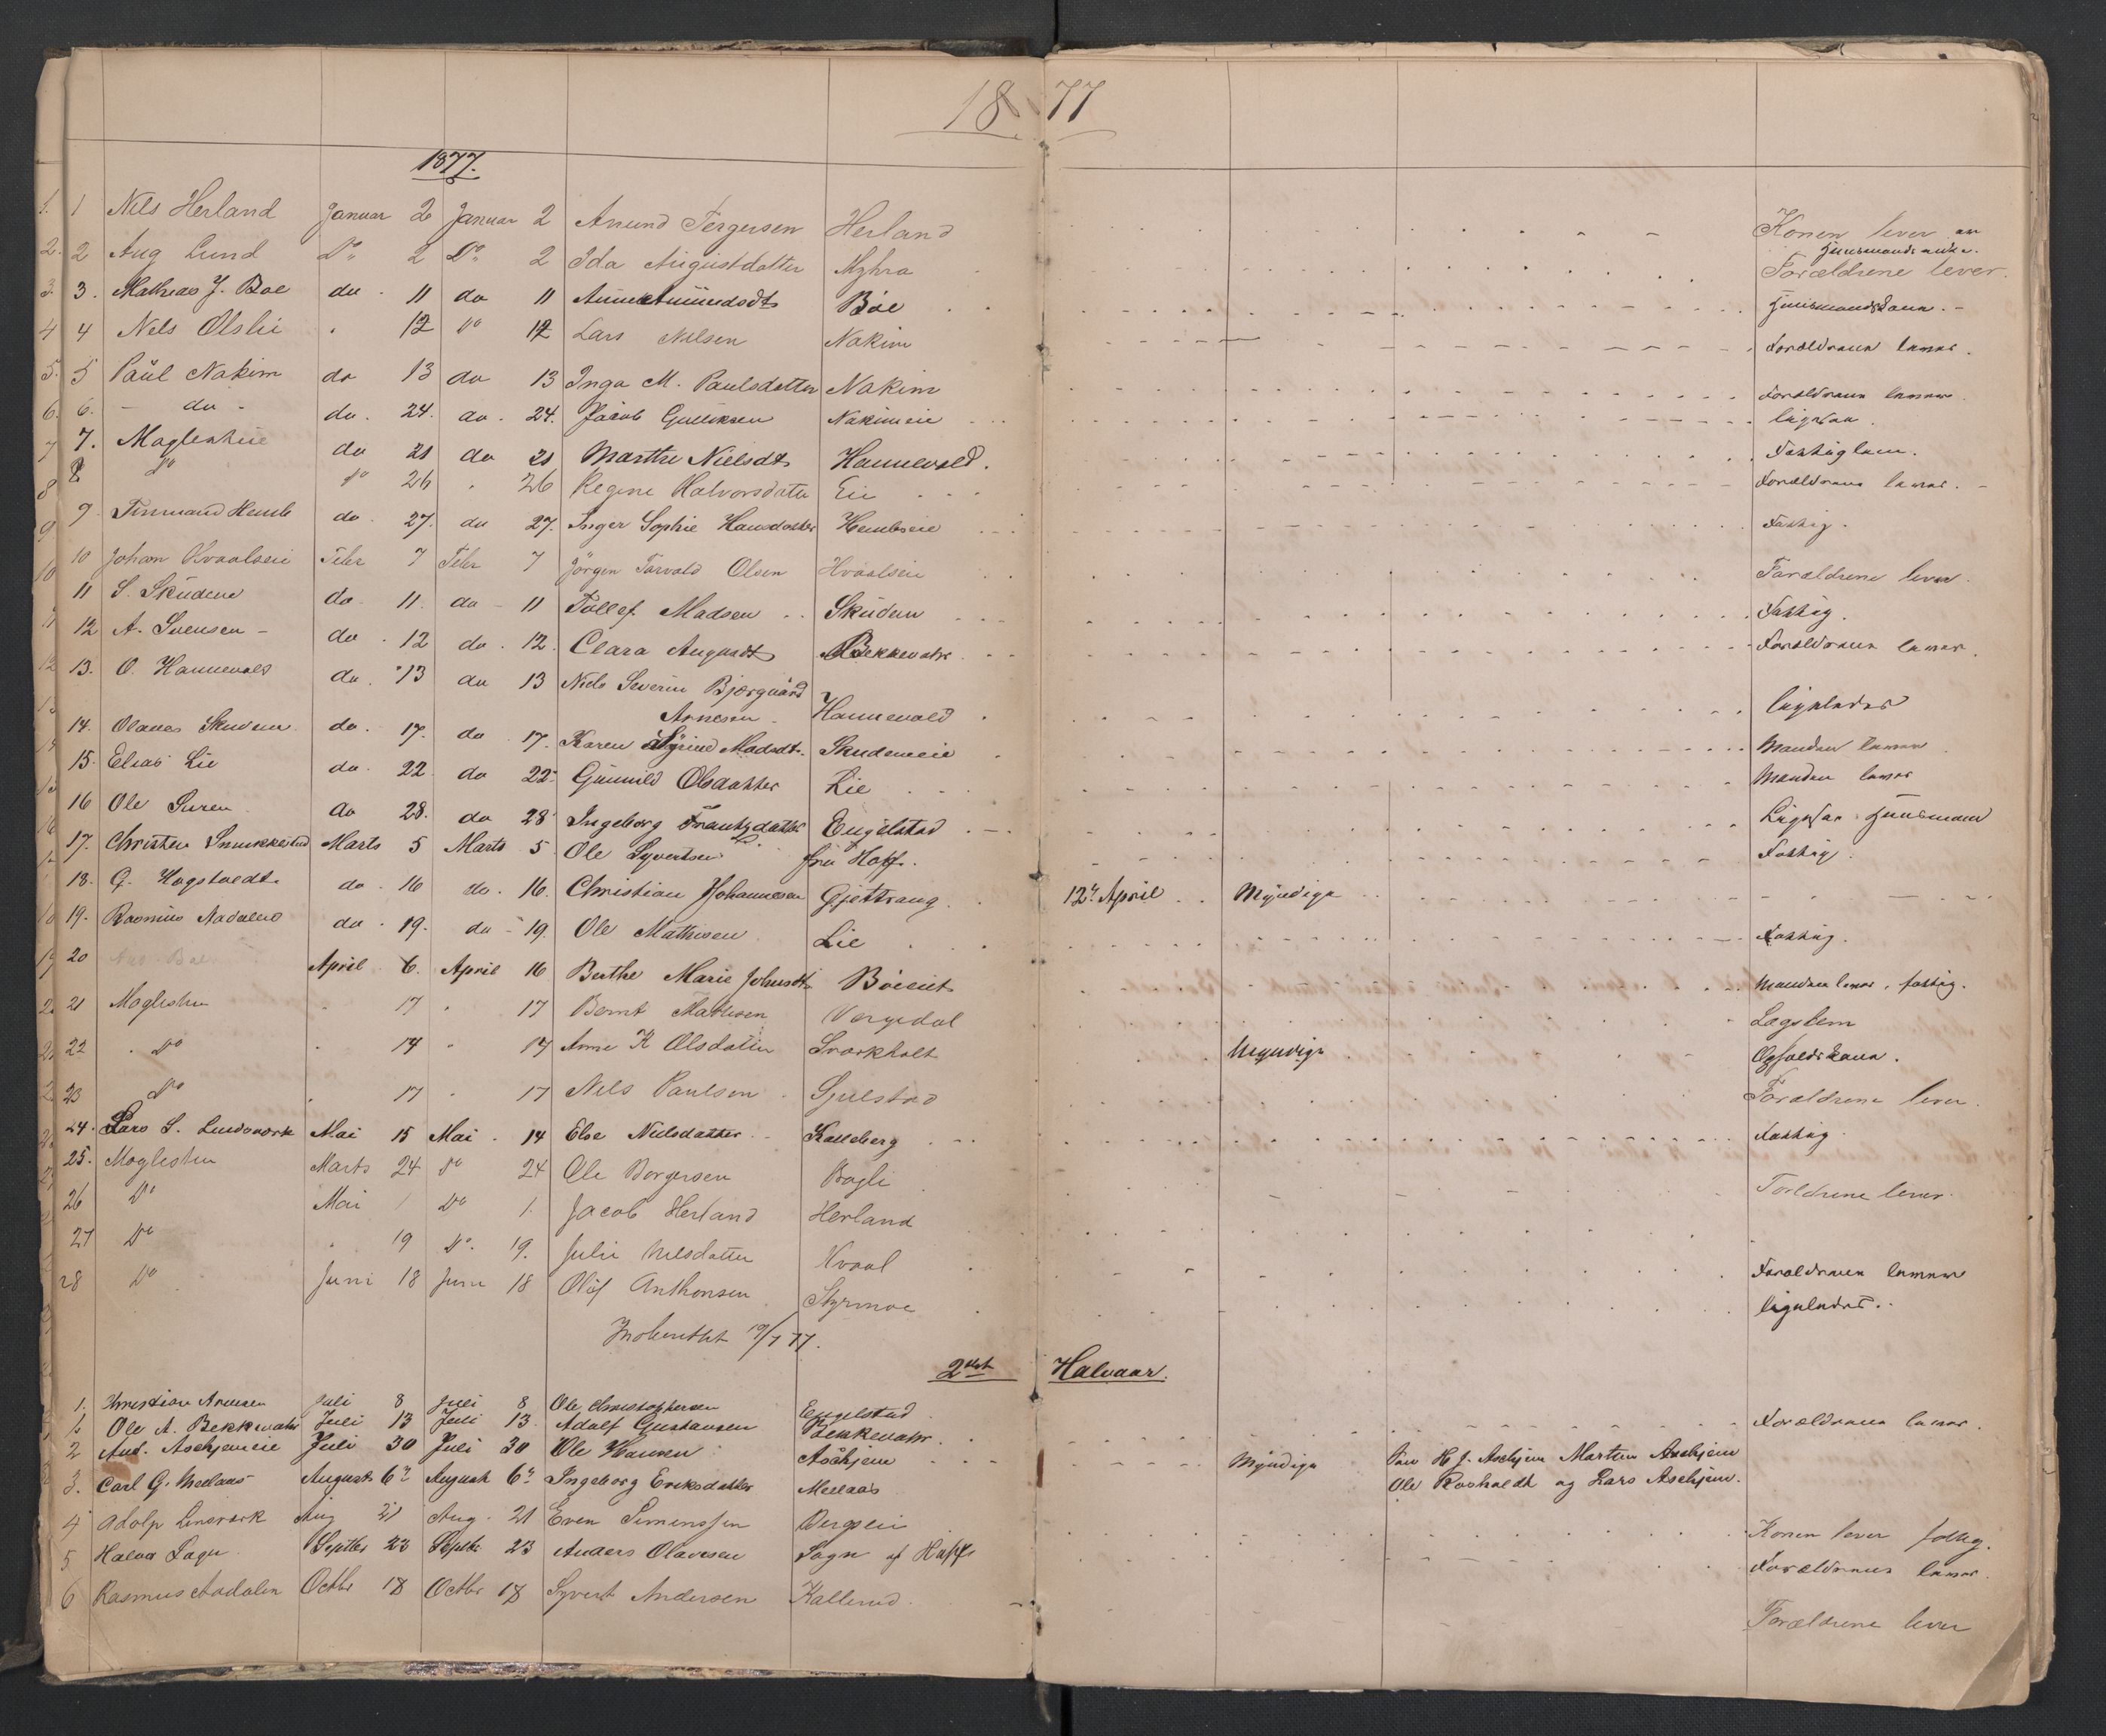 18 77
1877.
1 Nils Herland Januar 2 Januar 2 Anund Tergersen Herland Konen lever en
Huusmands enke.
2 Aug Lund Do 2 Do 2 Ida Augustdatter Myhra Forældrene lever.
3. Mathias J. Boe do 11 do 11 Anne Amundsdt Böe Huusmandskone.
4 Nils Olslie 12 Do 12 Lars Nilsen Nakim Forældrene lever.
5 Paul Nakim do 13 do 13 Inga M. Paulsdatter Nakim Forældrene lever.
6. - do - do. 24. do. 24. Jacob Gulliksen Nakimeie ligesaa.
7. Moglestue do 21 do 21 Marthe Nielsdt Hannevold. Fattiglem.
8 Do Do 26 26 Regine Halvorsdatter Eie Forældrene lever.
9 Finmand Hemb do. 27. do 27. Inger Sophie Hansdatter Hembseie Fattig.
10 Johan Hvaalseie Febr 7 Febr 7 Jörgen Torvald Olsen Hvaalseie Forældrene lever.
11 S. Skuden do 11. do 11 Tollef Madsen Skuden Fattig.
12 A. Svensen do 12 do. 12. Clara Augustdt Bekkevahr Forældrene lever.
13. O. Hannevold do. 13 do 13 Niels Severin Bjorguard
Arnesen Hannevold ligeledes
14. Olaves Skuden do. 17. do 17. Karen Madsdt. Skudeneie Manden lever
15. Elias Lie do. 22. do 22. Gunnild Olsdatter Lie Manden lever
16 Ole Suren do 28. do 28 Ingeborg Frantzdatter Engelstad Huusmand
17. Christen Marts 5 Marts 5. Ole Syvertsen fra Hoff.
Fattig.
18. G. Hogstvedt do 16 do. 16. Christian Johannesen Gjettrang 12te April Myndige
19. Rasmus Aadalen do. 19. do 19. Ole Mathisen Lie Fattig.
20 April 6. April 16 Berthe Marie Johnsdt Böeeiet Manden lever, fattig.
21 Moglestue 17 17 Bernt Mathisen Vergedal Lægslem
22 Do 14 14 Anne K Olsdatter Svarkholt Umyndige Opholdskone.
23 Do 17 17 Nils Paulsen Gjulstad Forældrene lever.
24. Lars S. Lindsværk Mai 15 Mai. 14 Else Nielsdatter Kalleberg Fattig
25. Moglestue Marts 24 Do 24 Ole Borgersen Bogli
26 Do Mai 1 Do 1. Jacob Herland Herland Forldrene lever.
27 Do 19 Do. 19. Julie Nilsdatter Hvaal
28 Do Juni 18 Juni 18 Olaf Anthonsen Styrmoe Forældrene lever
ligeledes.
Indberettet 10/7 77.
2det Halvaar.
1. Christian Arnesen Juli 8 Juli 8 Ole Christophersen Engelstad
1. Ole A. Bekkevahr Juli 13 Juli 13. Adolf Gustavsen Bekkevahr. Forældrene lever.
2 And. Aschjemeie Juli 30 Juli 30 Ole Hansen Aschjem Myndige H J. Aschjem Martin Aschjem
Ole Rosholdt og Lars Aschjem.
3. Carl G. Meelaas August 6te August 6te Ingeborg Eriksdatter Meelaas
4 Adolp Linsværk Aug 21 Aug. 21 Even Simenssen Bergseie Konen lever fattig.
5 Halvo Sagn Septbr 23 Septbr 23 Anders Olavesen Sagn af Hoff Forældrene lever.
6 Rasmus Aadalen Octbr 18 Octbr 18 Syvert Andersen Kallerud. Forældrene lever